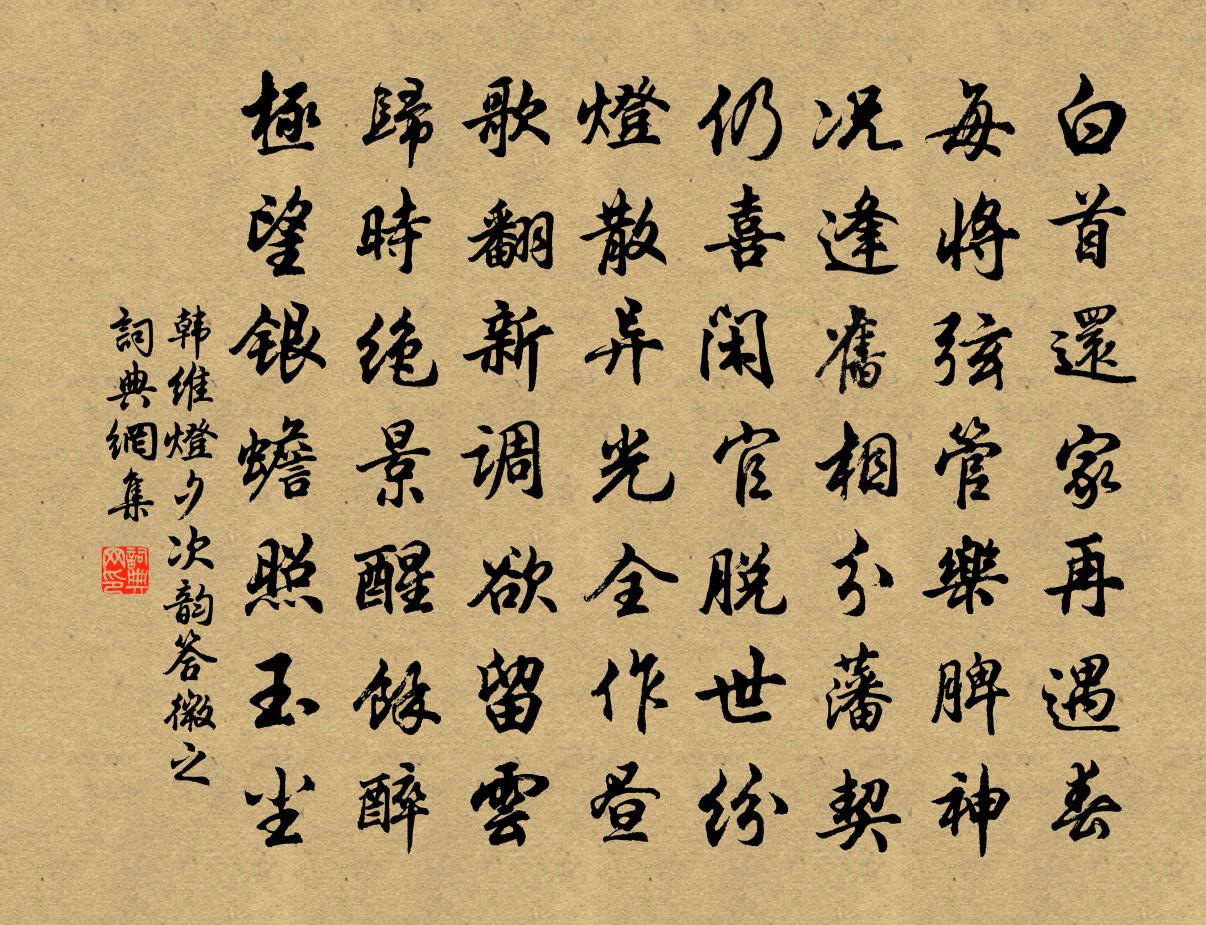 白首還家再遇春
每將弦管樂脾神
况逢舊相分藩契
仍喜閑官脱世紛
燈散异光全作昼
歌翻新调欲留雲
歸時绝景醒餘醉
極望银蟾照玉尘
韩维燈夕次韵答微之
詞典網集
詞典网印